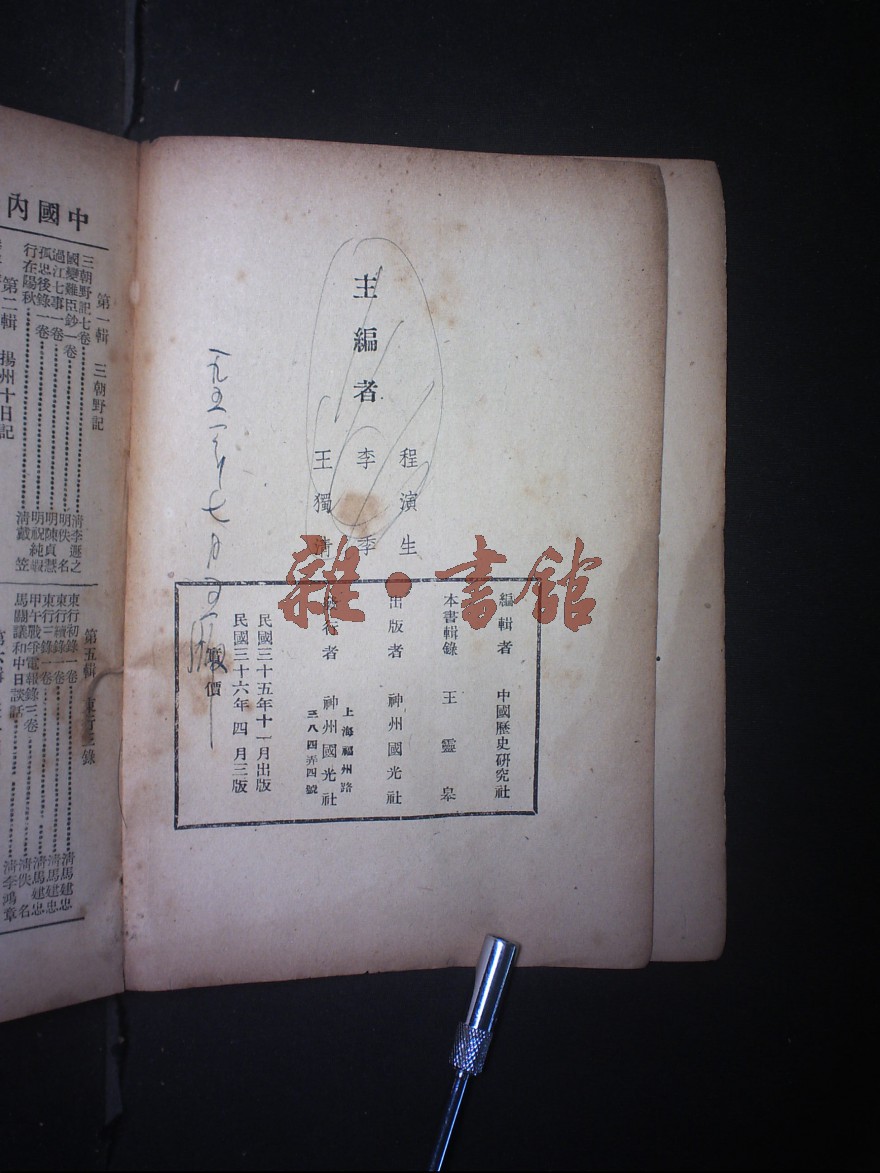 主編者
程演生
李季
王獨清
編輯者 中國歷史研究社
本書輯錄 王靈皋
出版者 神州國光社
發行者 神州國光社
上海福州路
三八四弄四號
民國三十五年十一月出版
民國三十六年四月三版
實價
一九五一年七月
雜·書館
中國內
第一輯 三朝野記
三朝野記七卷 清李遜之
國變難臣鈔一卷 明佚名
過江七事一卷 明陳貞慧
孤忠後錄一卷 明祝純嘏
行在陽秋 清戴笠
第二輯 揚州十日記
第五輯 東行三錄
東行初錄一卷 清馬建忠
東行續錄一卷 清馬建忠
東行三錄一卷 清馬建忠
甲午戰爭電報錄三卷 清佚名
馬關議和中日談話 清李鴻章